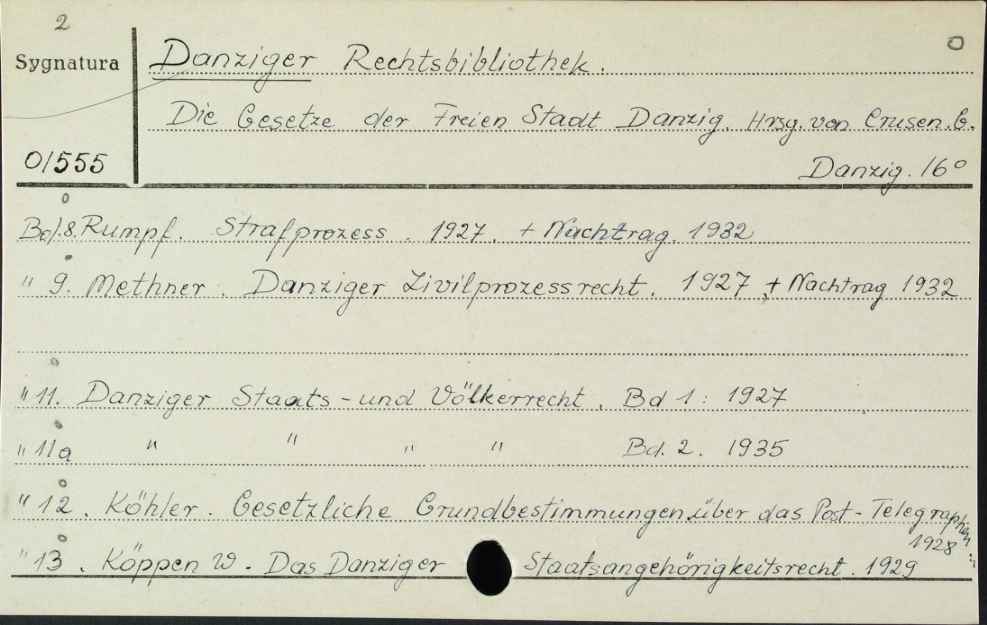 2
Sygnatura
O/555
Danziger Rechtsbibliothek.
Die Gesetze der Freien Stadt Danzig. Hrsg. von Crusen. G.
Danzig. 16°
Bd. 8. Rumpf. Strafprozess. 1927. + Nachtrag. 1932
" 9. Methner. Danziger Zivilprozessrecht. 1927, + Nachtrag 1932
" 11. Danziger Staats-und Völkerrecht. Bd 1: 1927
" 11a " " " " Bd. 2. 1935
" 12. Köhler. Gesetzliche Grundbestimmungen über das Post-Telegraphen
1928
" 13. Köppen W. Das Danziger Staatsangehörigkeitsrecht. 1929